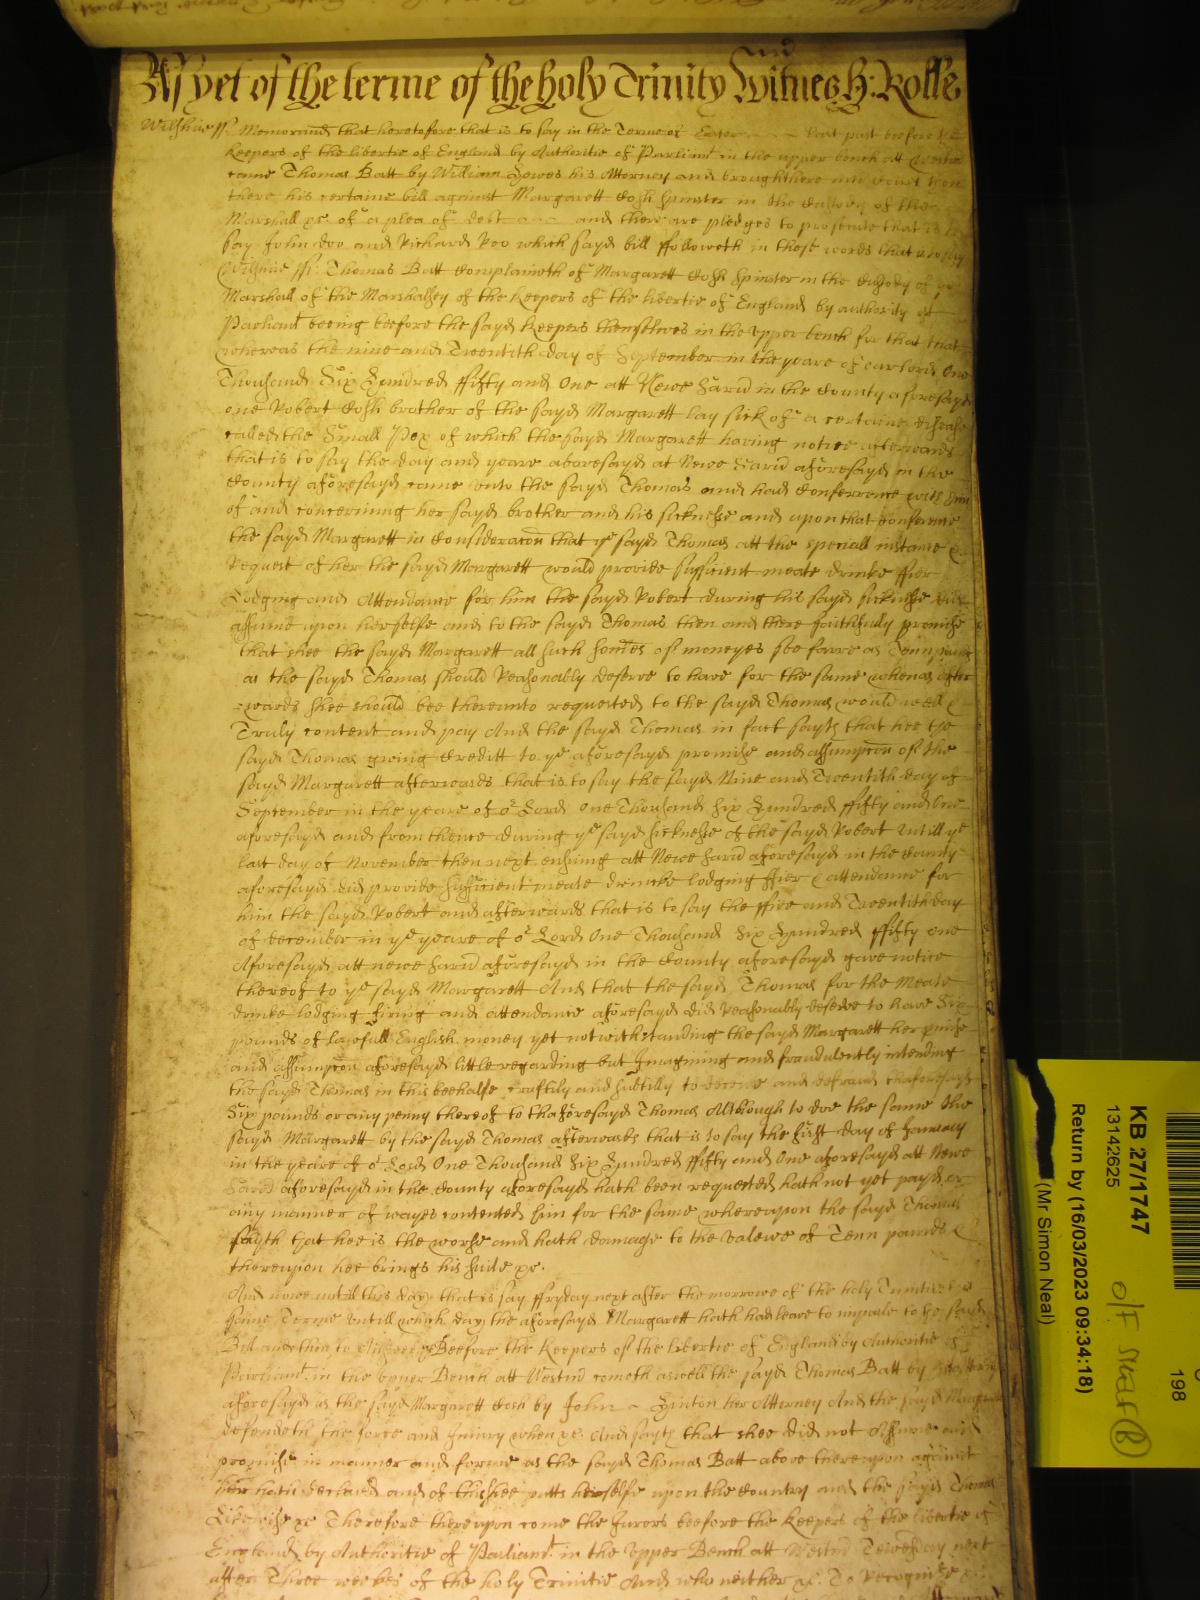 As yet of the terme of the holy Trinity Witnes H: Rolle
Wilshire ss. Memorand that heretofore that is to say in the Terme of Easter last past beefore the
Keepers of the libertie of England by Authoritie of Parliamt in the upper bench att Westm
came Thomas Batt by William Howes his Attorney and brought here into Court then
there his certaine bill against Margarett Cosh Spinster in the Custody of the
Marshall &c. of a plea of debt and there are pledges to prosecute that is to
say John Doo and Richard Roo which sayd bill ffolloweth in these words that is to say
Wilshire ss. Thomas Batt Complaineth of Margarett Cosh Spinster in the Custody of ye
Marshall of the Marshallsey of the Keepers of the libertie of England by authority of
Parliamt beeing beefore the sayd Keepers themselves in the upper bench for that that
whereas the nine and Twentith day of September in the yeare of our lord One
Thousand Six Hundred ffifty and One att Newe Sarū in the County aforesayd
one Robert Cosh brother of the sayd Margarett lay sick of a certaine disease
called the Small Pox of which the sayd Margarett having notice afterwards
that is to say the day and yeare aforesayd at Newe Sarū aforesayd in the
County aforesayd came unto the sayd Thomas and had Conferrence with him
of and concerning her sayd brother and his sicknesse and upon that Conference
the sayd Margarett in Consideracon that ye sayd Thomas att the speciall instance &
Request of her the sayd Margarett would provide sufficient meate drinke ffier
Lodging and Attendance for him the sayd Robert during his sayd sicknesse did
assume upon herselfe and to the sayd Thomas then and there faithfully promise
that shee the sayd Margarett all such somes of moneyes soe farre as Tenn pounds
as the sayd Thomas should Reasonably deserve to have for the same whenas after
wards shee should bee thereunto requested to the sayd Thomas would well &
Truly content and pay And the sayd Thomas in fact sayth that hee the
sayd Thomas giving Creditt to ye aforesayd promise and assumpcon of the
sayd Margarett afterwards that is to say the sayd Nine and Twentith day of
September in the yeare of or Lord One Thousand Six Hundred ffifty and One
aforesayd and from thence during ye sayd sicknesse of the sayd Robert untill ye
last day of November then next ensuing att Newe Sarū aforesayd in the County
aforesayd did provide sufficient meate drincke lodging ffier & attendance for
him the sayd Robert and afterwards that is to say the ffive and Twentith day
of december in ye yeare of or Lord One Thousand Six Hundred ffifty one
Aforesayd att newe Sarū aforesayd in the County aforesayd gave notice
thereof to ye sayd Margarett And that the sayd Thomas for the Meate
drinke lodging firing and attendance aforesayd did Reasonably deserve to have Six
pounds of lawfull English money yet notwithstanding the sayd Margarett her pmise
and assumpcon aforesayd little regarding but Imagining and fraudulently intending
the sayd Thomas in this beehalfe craftily and subtilly to deceive and defraud thaforesayd
Six pounds or any penny thereof to thaforesayd Thomas Although to doe the same the
sayd Margarett by the sayd Thomas afterwards that is to say the first day of January
in the yeare of or Lord One Thousand Six Hundred ffifty and One aforesayd att Newe
Sarū aforesayd in the County aforesayd hath been requested hath not yet payd or
any manner of wayes contented him for the same whereupon the sayd Thomas
sayth that hee is the worse and hath damage to the valewe of Tenn pounds &
thereupon hee brings his suite &c.
And nowe untill this day that is say ffryday next after the morrowe of the holy Trinitie
same Terme untill which day the aforesayd Margarett hath had leave to imparle to the sayd
Bill and then to Answer &c Beefore the Keepers of the libertie of England by Authoritie of
Parliamt. in the upper Bench att Westm cometh aswell the sayd Thomas Batt by
aforesayd as the sayd Margarett Cosh by John Hinton her Attorney And the sayd Margarett
defendeth the force and Injury when &c. And sayth that shee did not Assume and
promise in manner and forme as the sayd Thomas Batt above thereupon against
her hath declared and of this shee putts herselfe upon the Country and the sayd Thomas
Likewise &c Therefore thereupon come the Jurors beefore the Keepers of the libertie of
England by Authoritie of Parliamt. in the upper Bench att Westm Tewesday next
after Three weekes of the holy Trinitie And who neither &c. To Recognise
KB 27/1747
13142625
Return by (16/03/2023 09:34:18)
(Mr Simon Neal)
198